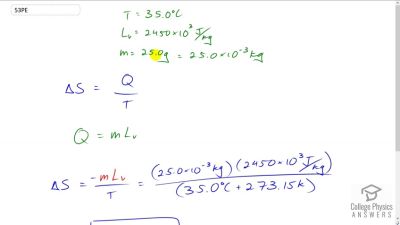 53PE
T = 35.0°C
Lv = 2450×10³ J/kg
m = 25.0g = 25.0×10⁻³ kg
ΔS = Q/T
Q = mLv
ΔS = -mLv/T = (25.0×10⁻³ kg)(2450×10³ J/kg)/(35.0°C + 273.15k)
College Physics
ANSWERS